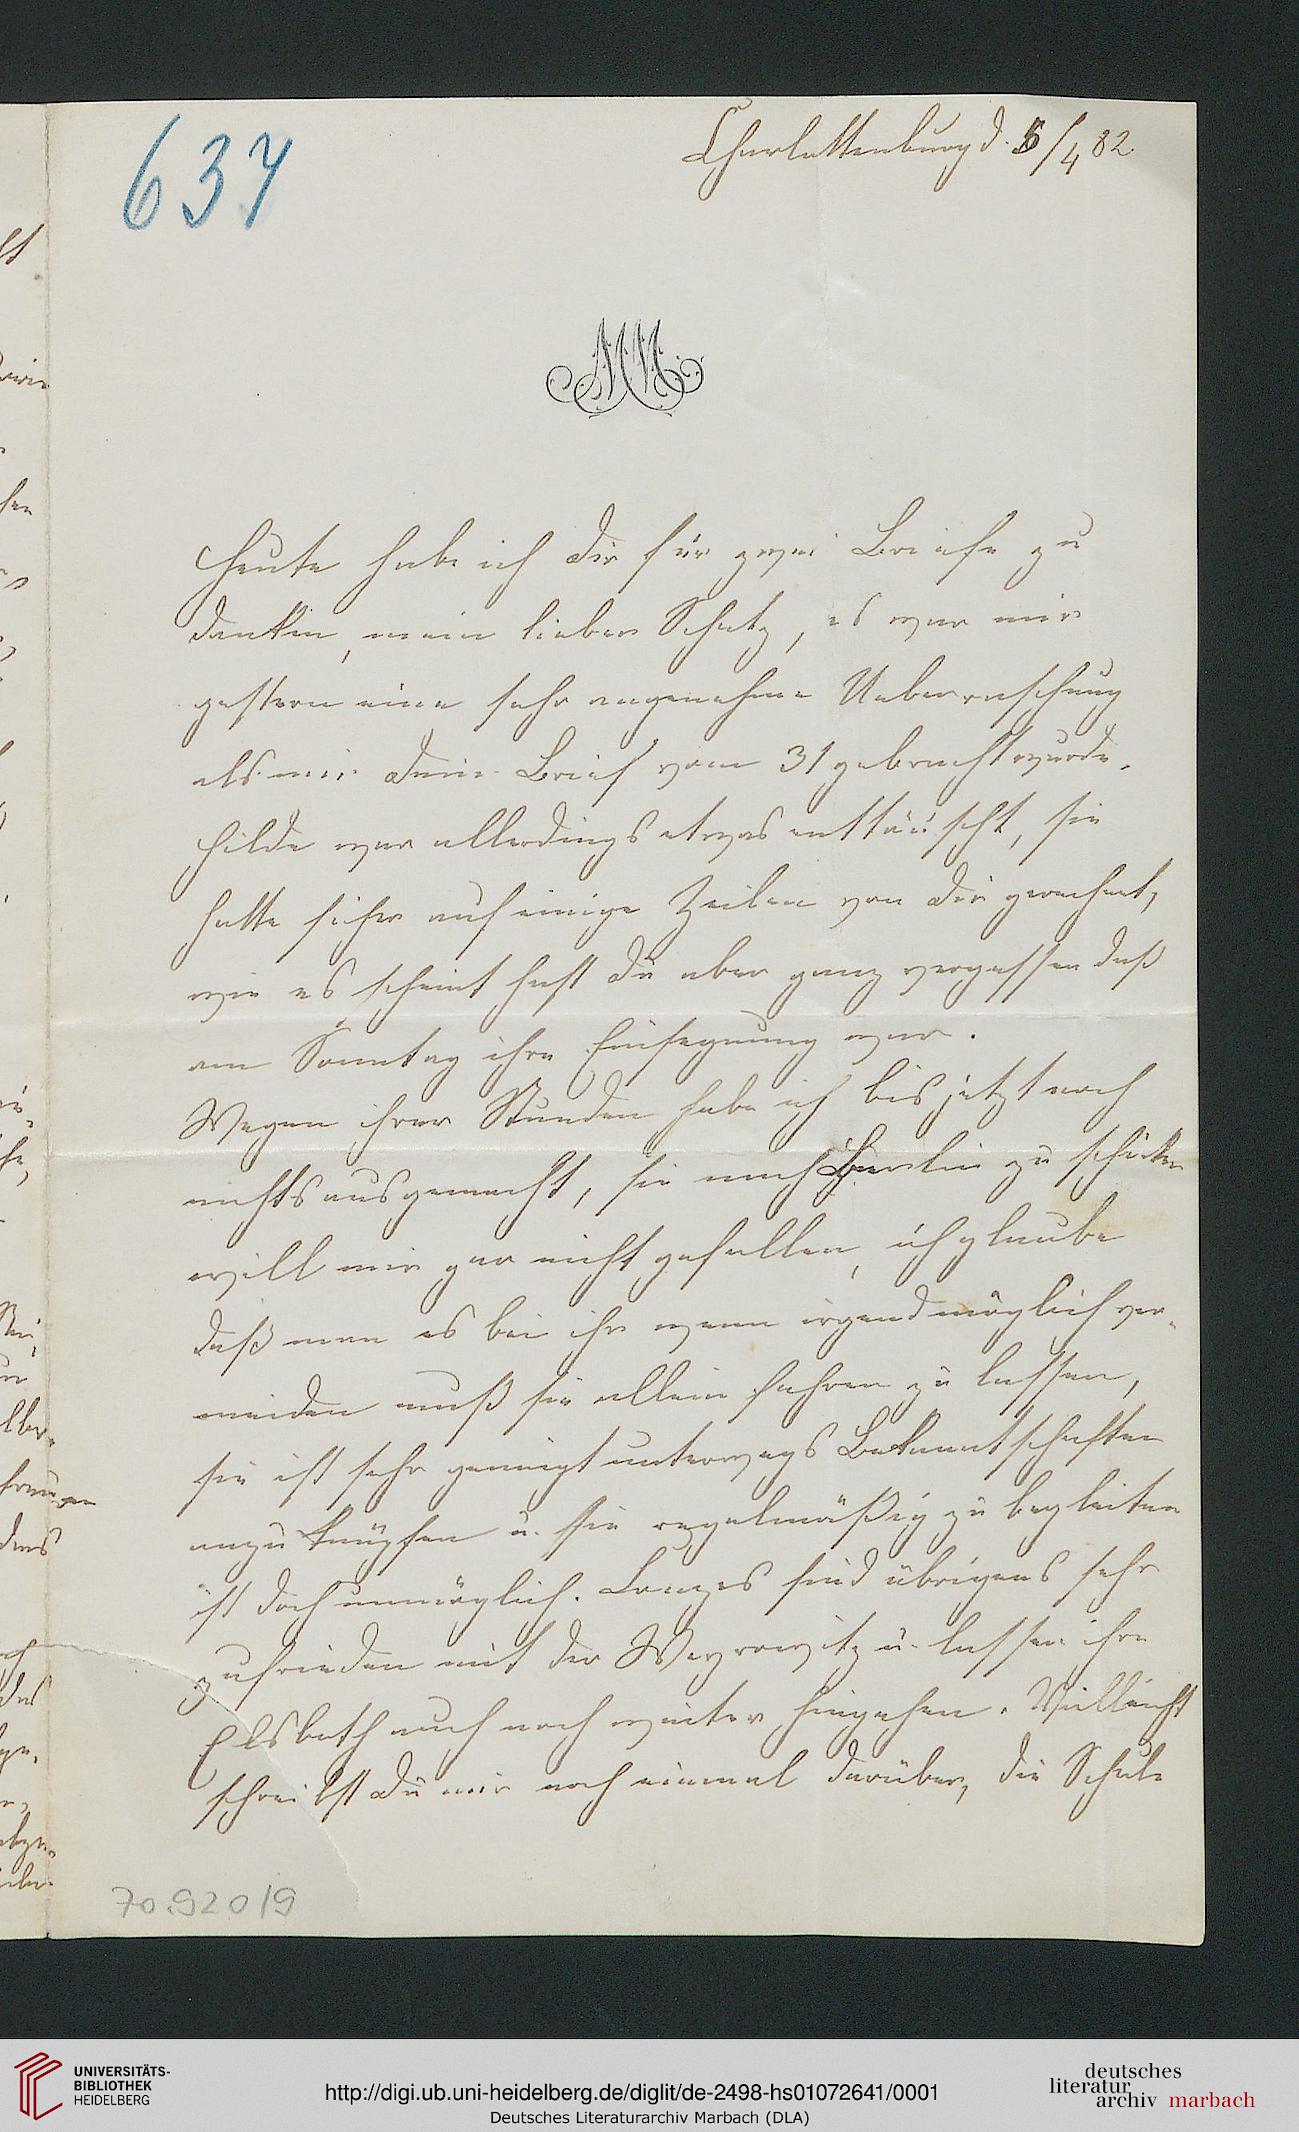 637
Charlottenburg d. 5/4 82.
AM
Heute habe ich Dir für zwei Briefe zu
danken, mein lieber Schatz, es war mir
gestern eine sehr angenehme Ueberraschung
als mir Dein Brief vom 31 gebracht wurde.
Hilde war allerdings etwas enttäuscht, sie
hatte sicher auf einige Zeilen von Dir gerechnet,
wie es scheint hast Du aber ganz vergessen daß
am Sonntag ihre Einsegnung war.
Wegen ihrer Stunden habe ich bis jetzt noch
nichts ausgemacht, sie nach Berlin zu schicken
will mir gar nicht gefallen, ich glaube
daß man es bei ihr wenn irgend möglich ver-
meiden muß sie allein fahren zu lassen,
sie ist sehr geneigt unterwegs Bekanntschaften
anzuknüpfen u. sie regelmäßig zu begleiten
ist doch unmöglich. Lonzes sind übrigens sehr
zufrieden mit der Weyrowitz u. lassen ihre
Elsbeth auch noch weiter hingehen. Vielleicht
schreibst Du mir noch einmal darüber, die Schule
70.920/9
UNIVERSITÄTS-
BIBLIOTHEK
HEIDELBERG
http://digi.ub.uni-heidelberg.de/diglit/de-2498-hs01072641/0001
Deutsches Literaturarchiv Marbach (DLA)
deutsches
literatur
archiv marbach